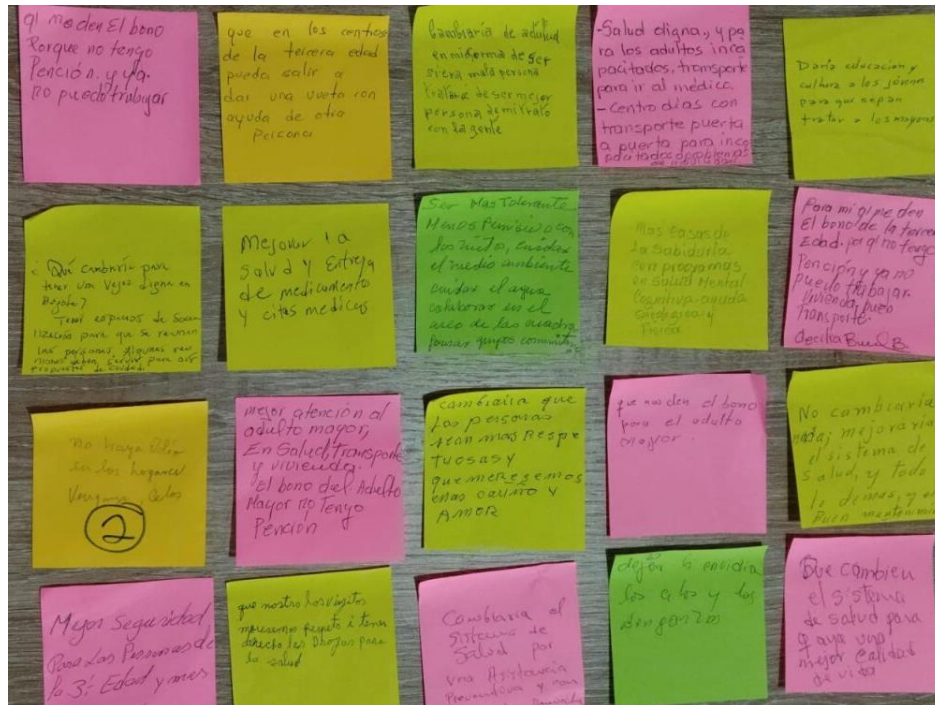 ql me den El bono
Porque no tengo
Pención. y ya.
no puedo trabajar
que en los centros
de la tercera edad
pueda salir a
dar una vuelta con
ayuda de otra
Persona
Cambiaría de actitud
en mi forma de ser
si era mala persona
trataré de ser mejor
persona de mi trato
con la gente
-Salud digna, y pa
ra los adultos inca
pacitados, transporte
para ir al médico.
-Centro dias con
transporte puerta
a puerta para inca
pacitados
Daría educacion y
cultura a los jóvenes
para que sepan
tratar a los mayores
¿Qué cambiaría para
tener una Vejes digna en
Bogota?
Tener espacios de Socia
lización para que se reunan
las personas. Algunas reu
niones deben servir para dar
propuestas de ciudad.
Mejorar la
salud y Entrega
de medicamentos
y citas medicas
Ser Mas Tolerante
Menos
los niños, cuidar
el medio ambiente
cuidar el agua
colaborar en el
aseo de las cuadra
grupos
Mas Casas de
la Sabiduria
con programas
en Salud Mental
Cognitiva ayuda
Sicologica y
Fisica
Para mi q me den
El bono de la tercera
Edad. porq no tengo
Pención y ya no
puedo trabajar
Vivienda,
transporte.
Cecilia
no haya
en los hogares
Celos
2
mejor atención al
adulto mayor,
En Salud, Transporte
y vivienda.
El bono del Adulto
Mayor no Tengo
Pención
cambiaira que
las personas
sean mas Respe
tuosas y
que meresemos
CARIÑO Y
AMOR
que nos den el bono
para el adulto
mayor.
No cambiaría
nada; mejoraría
el sistema de
salud, y todo
lo demas, y un
Buen mantenimi
Mejor Seguridad
Para Las Personas de
la 3ª Edad y mas
que nostro los viejitos
meresemos respeto i tener
derecho las Drogas para
la salud
Cambiaria el
Sistema de
Salud por
una Asistencia
Preventiva y
dejar la envidia
los celos y las
Que cambien
el sistema
de salud para
q aya una
mejor calidad
de vida